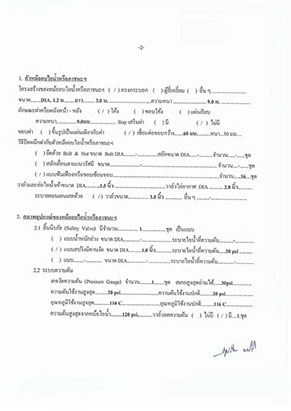 -2-
1. ตัวหม้ออบไอน้ำหรือภาชนะฯ
โครงสร้างของหม้ออบไอน้ำหรือภาชนะฯ ( / ) ทรงกระบอก ( ) ตู้สี่เหลี่ยม ( ) อื่น ๆ
ขนาด DIA. 1.2 ม. ยาว 3.0 ม. ความหนา 9.0 ม.
ลักษณะฝาหรือผนังหน้า - หลัง ( / ) โค้ง ( ) ขอบโค้ง ( ) แผ่นเรียบ
ความหนา 9.0มม. Stay เสริมฝา ( ) มี ( / ) ไม่มี
ขอบฝา ( ) ขึ้นรูปเป็นแผ่นเดียวกับฝา ( / ) เชื่อมต่อขอบกว้าง 60 มม. หนา 30 มม.
ใช้ปิดผนึกฝากับตัวหม้ออบไอน้ำหรือภาชนะฯ
( ) ยึดด้วย Bolt & Nut ขนาด Bolt DIA. - สลักขนาด DIA. - จำนวน - ชุด
( ) สลักเลื่อนตามแนวรัศมี ขนาด DIA. - จำนวน - ชุด
( / ) แบบฟันเฟืองหรือขอบซ้อนขอบ จำนวน 16 ชุด
วาล์วและท่อไอน้ำเข้าขนาด DIA. 1.5 นิ้ว วาล์วไล่อากาศ DIA. 2.0 นิ้ว
ระบายคอนเดนเสทด้วย ( / ) วาล์วขนาด 3.0 นิ้ว อื่น ๆ -
2. สภาพอุปกรณ์ของหม้ออบไอน้ำหรือภาชนะฯ
2.1 ลิ้นนิรภัย (Safety Valve) มีจำนวน 1 ชุด เป็นแบบ
( ) แบบน้ำหนักถ่วง ขนาด DIA. - ระบายไอน้ำที่ความดัน -
( / ) แบบสปริงมีคานงัด ขนาด DIA. 1.0 นิ้ว ระบายไอน้ำที่ความดัน 30 psi
( ) แบบ - ขนาด DIA. - ระบายไอน้ำที่ความดัน -
2.2 ระบบความดัน
เกจวัดความดัน (Pressure Gauge) จำนวน 1 ชุด สเกลสูงสุดอ่านได้ 30psi
ความดันใช้งานสูงสุด 20 psi ความดันใช้งานปกติ 20 psi
อุณหภูมิใช้งานสูงสุด 116 C อุณหภูมิใช้งานปกติ 116 C
ความดันสูงสุดจากหม้อไอน้ำ 120 psi วาล์วลดความดัน ( ) ไม่มี ( / ) มี 1 ชุด